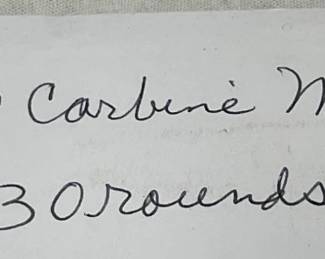 Carbine M
30 rounds